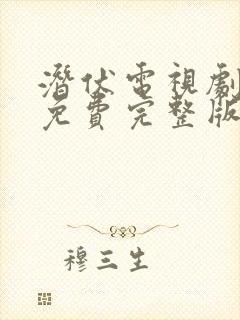 潛伏電視劇
免費完整版
穆三生